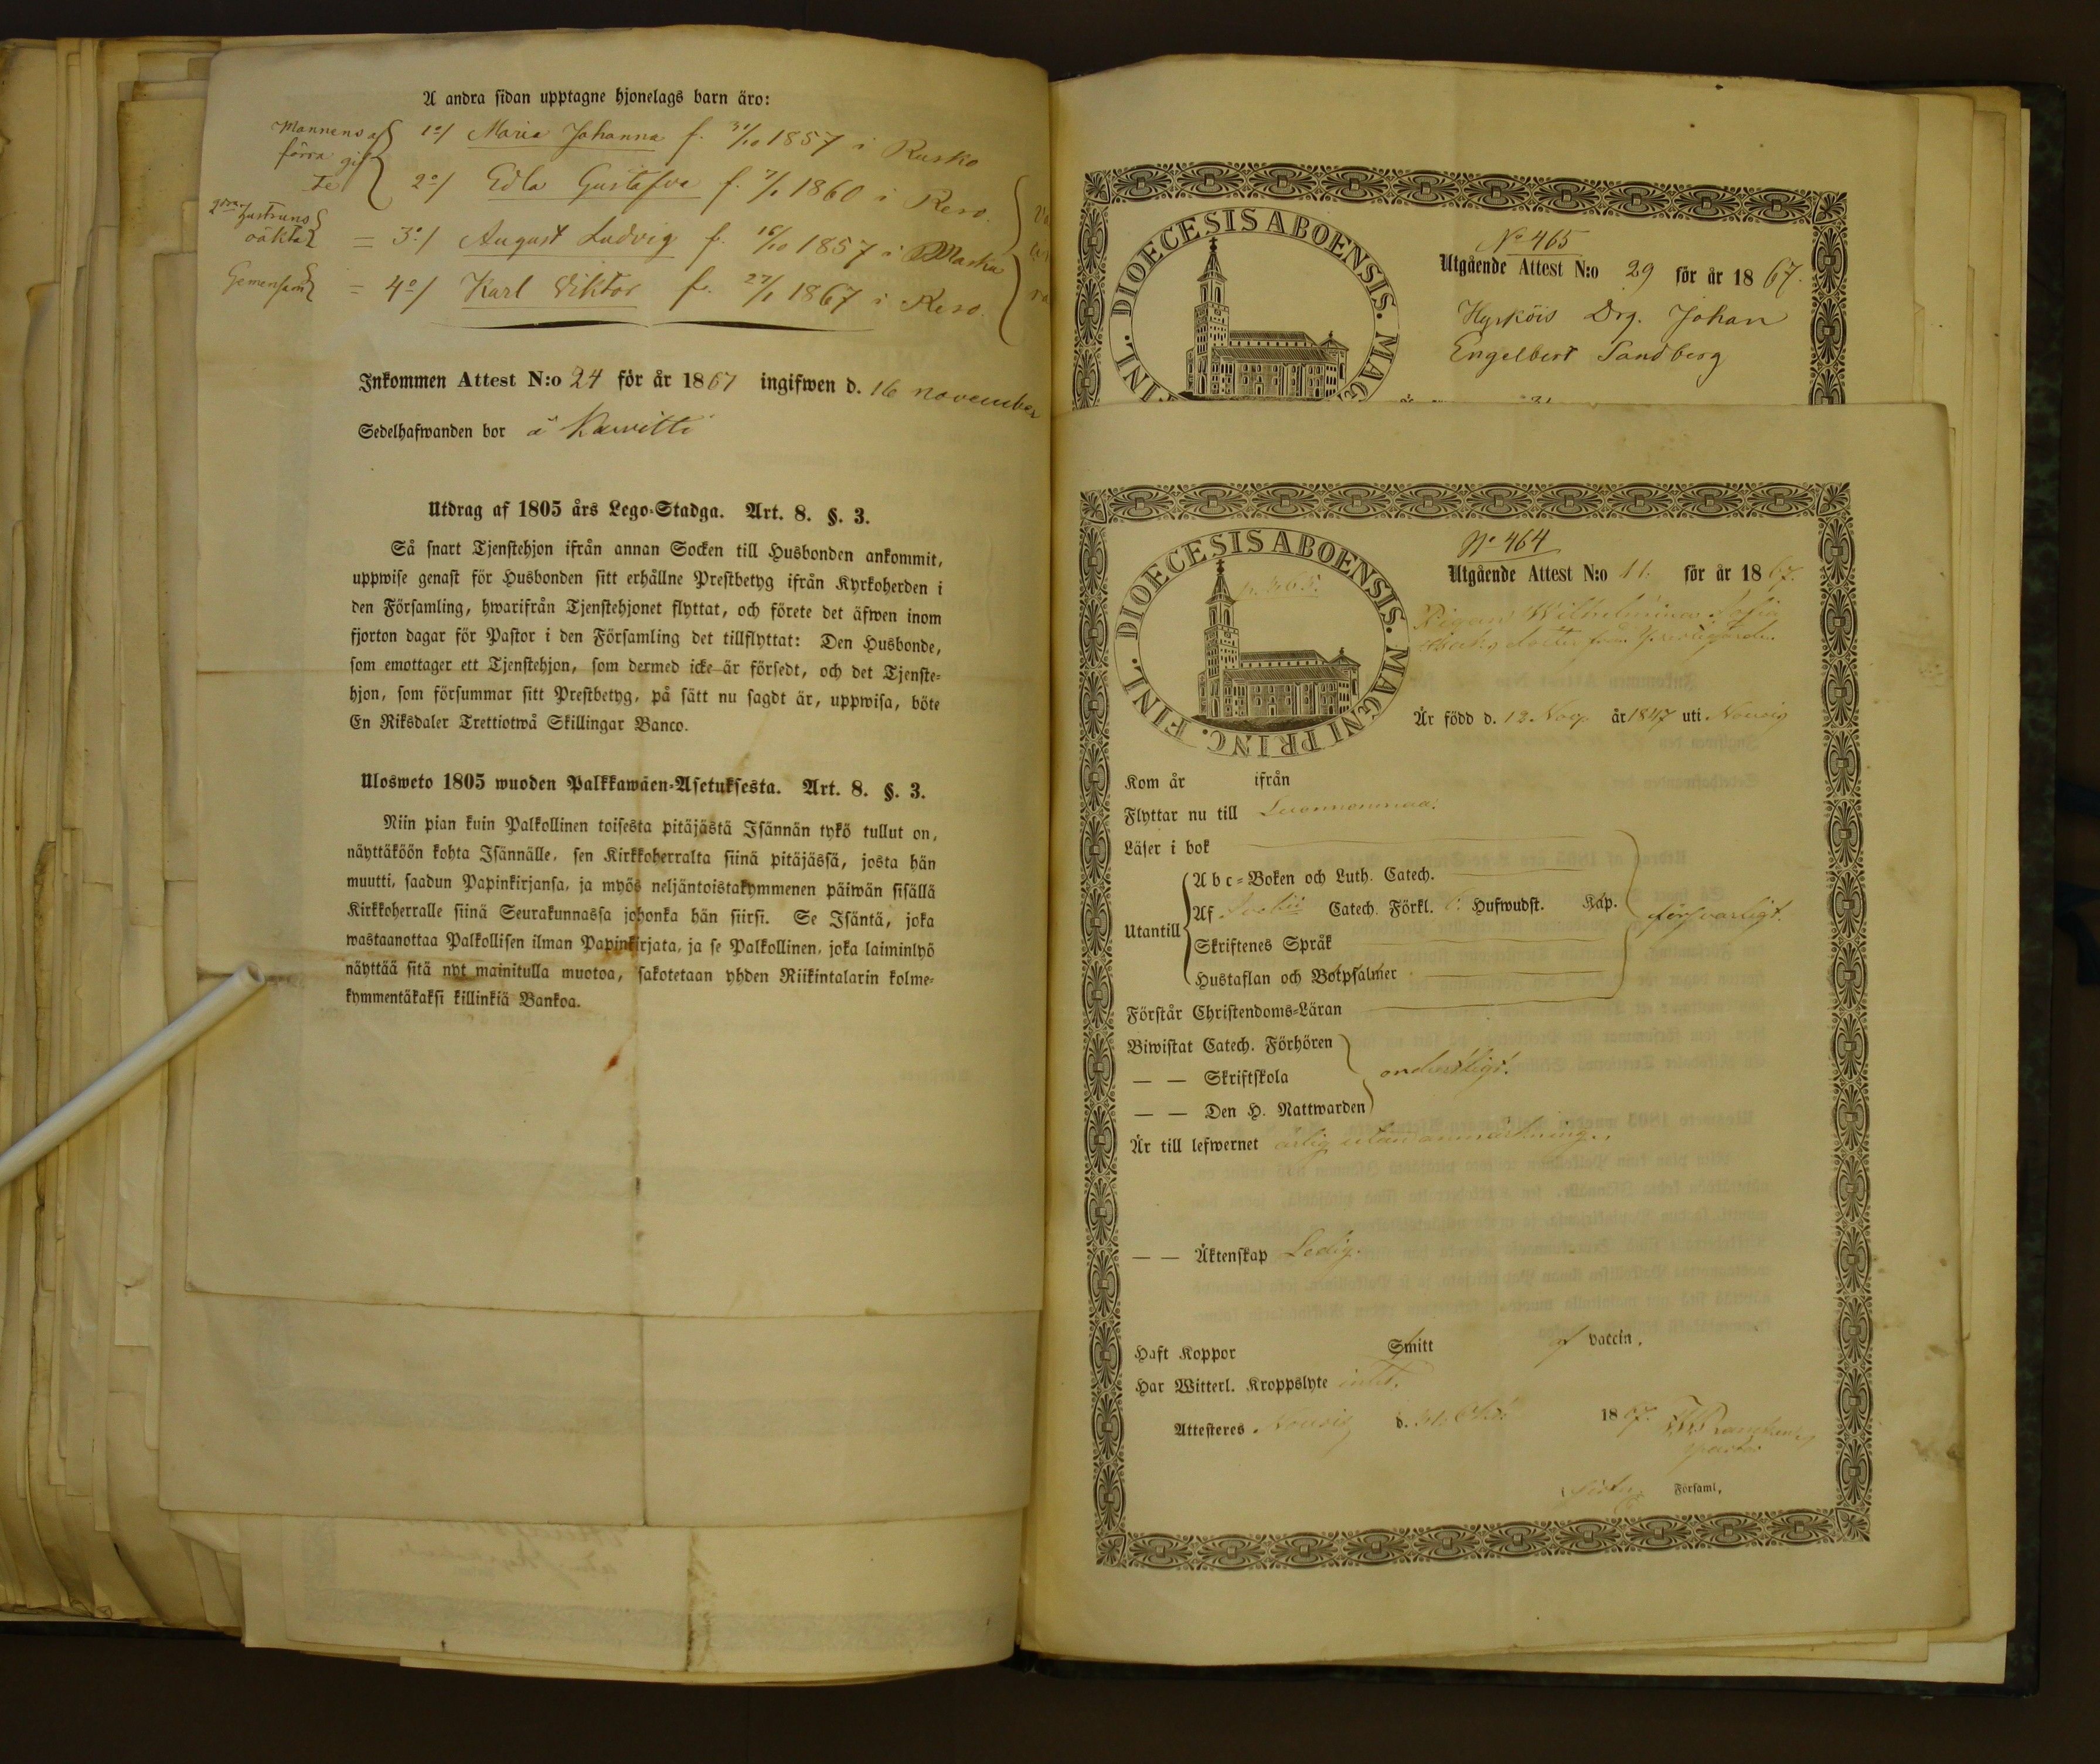 A andra sidan upptagne hjonelags barn äro:
Mannens af
förra gif
te
1o/ Maria Johanna f. 31/10 1857 i Rusko
2o/ Edla Gustafva f. 7/1 1860 i Reso.
hustruns
oäkta = 3o/ August Ludvig f. 16/10 1857 i Masku
Gemensam = 4o/ Karl Viktor f. 27/1 1867 i Reso.
Inkommen Attest N:o 24 för år 1867 ingifwen d. 16 november
Sedelhafwanden bor å Kawitti
Utdrag af 1805 års Lego-Stadga. Art. 8. §. 3.
Så snart Tjenstehjon ifrån annan Socken till Husbonden ankommit,
uppwise genast för Husbonden sitt erhållne Prestbetyg ifrån Kyrkoherden i
den Församling, hwarifrån Tjenstehjonet flyttat, och förete det äfwen inom
fjorton dagar för Pastor i den Församling det tillflyttat: Den Husbonde,
som emottager ett Tjenstehjon, som dermed icke är försedt, och det Tjenste-
hjon, som försummar sitt Prestbetyg, på sätt nu sagdt är, uppwisa, böte
En Riksdaler Trettiotwå Skillingar Banco.
Ulosweto 1805 wuoden Palkkawäen-Asetuksesta. Art. 8. §. 3.
Niin pian kuin Palkollinen toisesta pitäjästä Isännän tykö tullut on,
näyttäköön kohta Isännälle, sen Kirkkoherralta siinä pitäjässä, josta hän
muutti, saadun Papinkirjansa, ja myös neljäntoistakymmenen päiwän sisällä
Kirkkoherralle siinä Seurakunnassa johonka hän siirsi. Se Isäntä, joka
wastaanottaa Palkollisen ilman Papinkirjata, ja se Palkollinen, joka laiminlyö
näyttää sitä nyt mainitulla muotoa, sakotetaan yhden Riikintalarin kolme-
kymmentäkaksi killinkiä Bankoa.
DIOECESIS ABOENSIS. MAG
FINL.
No 465
Utgående Attest N:o 29 för år 1867.
Hyrköis Drg. Johan
Engelbert Sandberg
DIOECESIS ABOENSIS. MAGNI PRINC. FINL.
No 464
Utgående Attest N:o 11. för år 1867.
Pigan Wilhelmina Sofia
Är född d. 12 Nov. år 1847 uti Nousis
Kom år ifrån
Flyttar nu till Luonnonmaa.
Läser i bok
Utantill
Abc-Boken och Luth. Catech.
Af Svebii Catech. Förkl. Hufwudst. Kap.
försvarligt.
Skriftenes Språk
Hustaflan och Botpsalmer
Förstår Christendoms-Läran
Biwistat Catech. Förhören
— — Skriftskola
ordentligt.
— — Den H. Nattwarden
Är till lefwernet ärlig utan anmärkning.
— — Äktenskap Ledig.
Haft Koppor Smitt af vaccin.
Har Witterl. Kroppslyte intet.
Attesteres Nousis d. 31. Okt. 1867.
Församl.